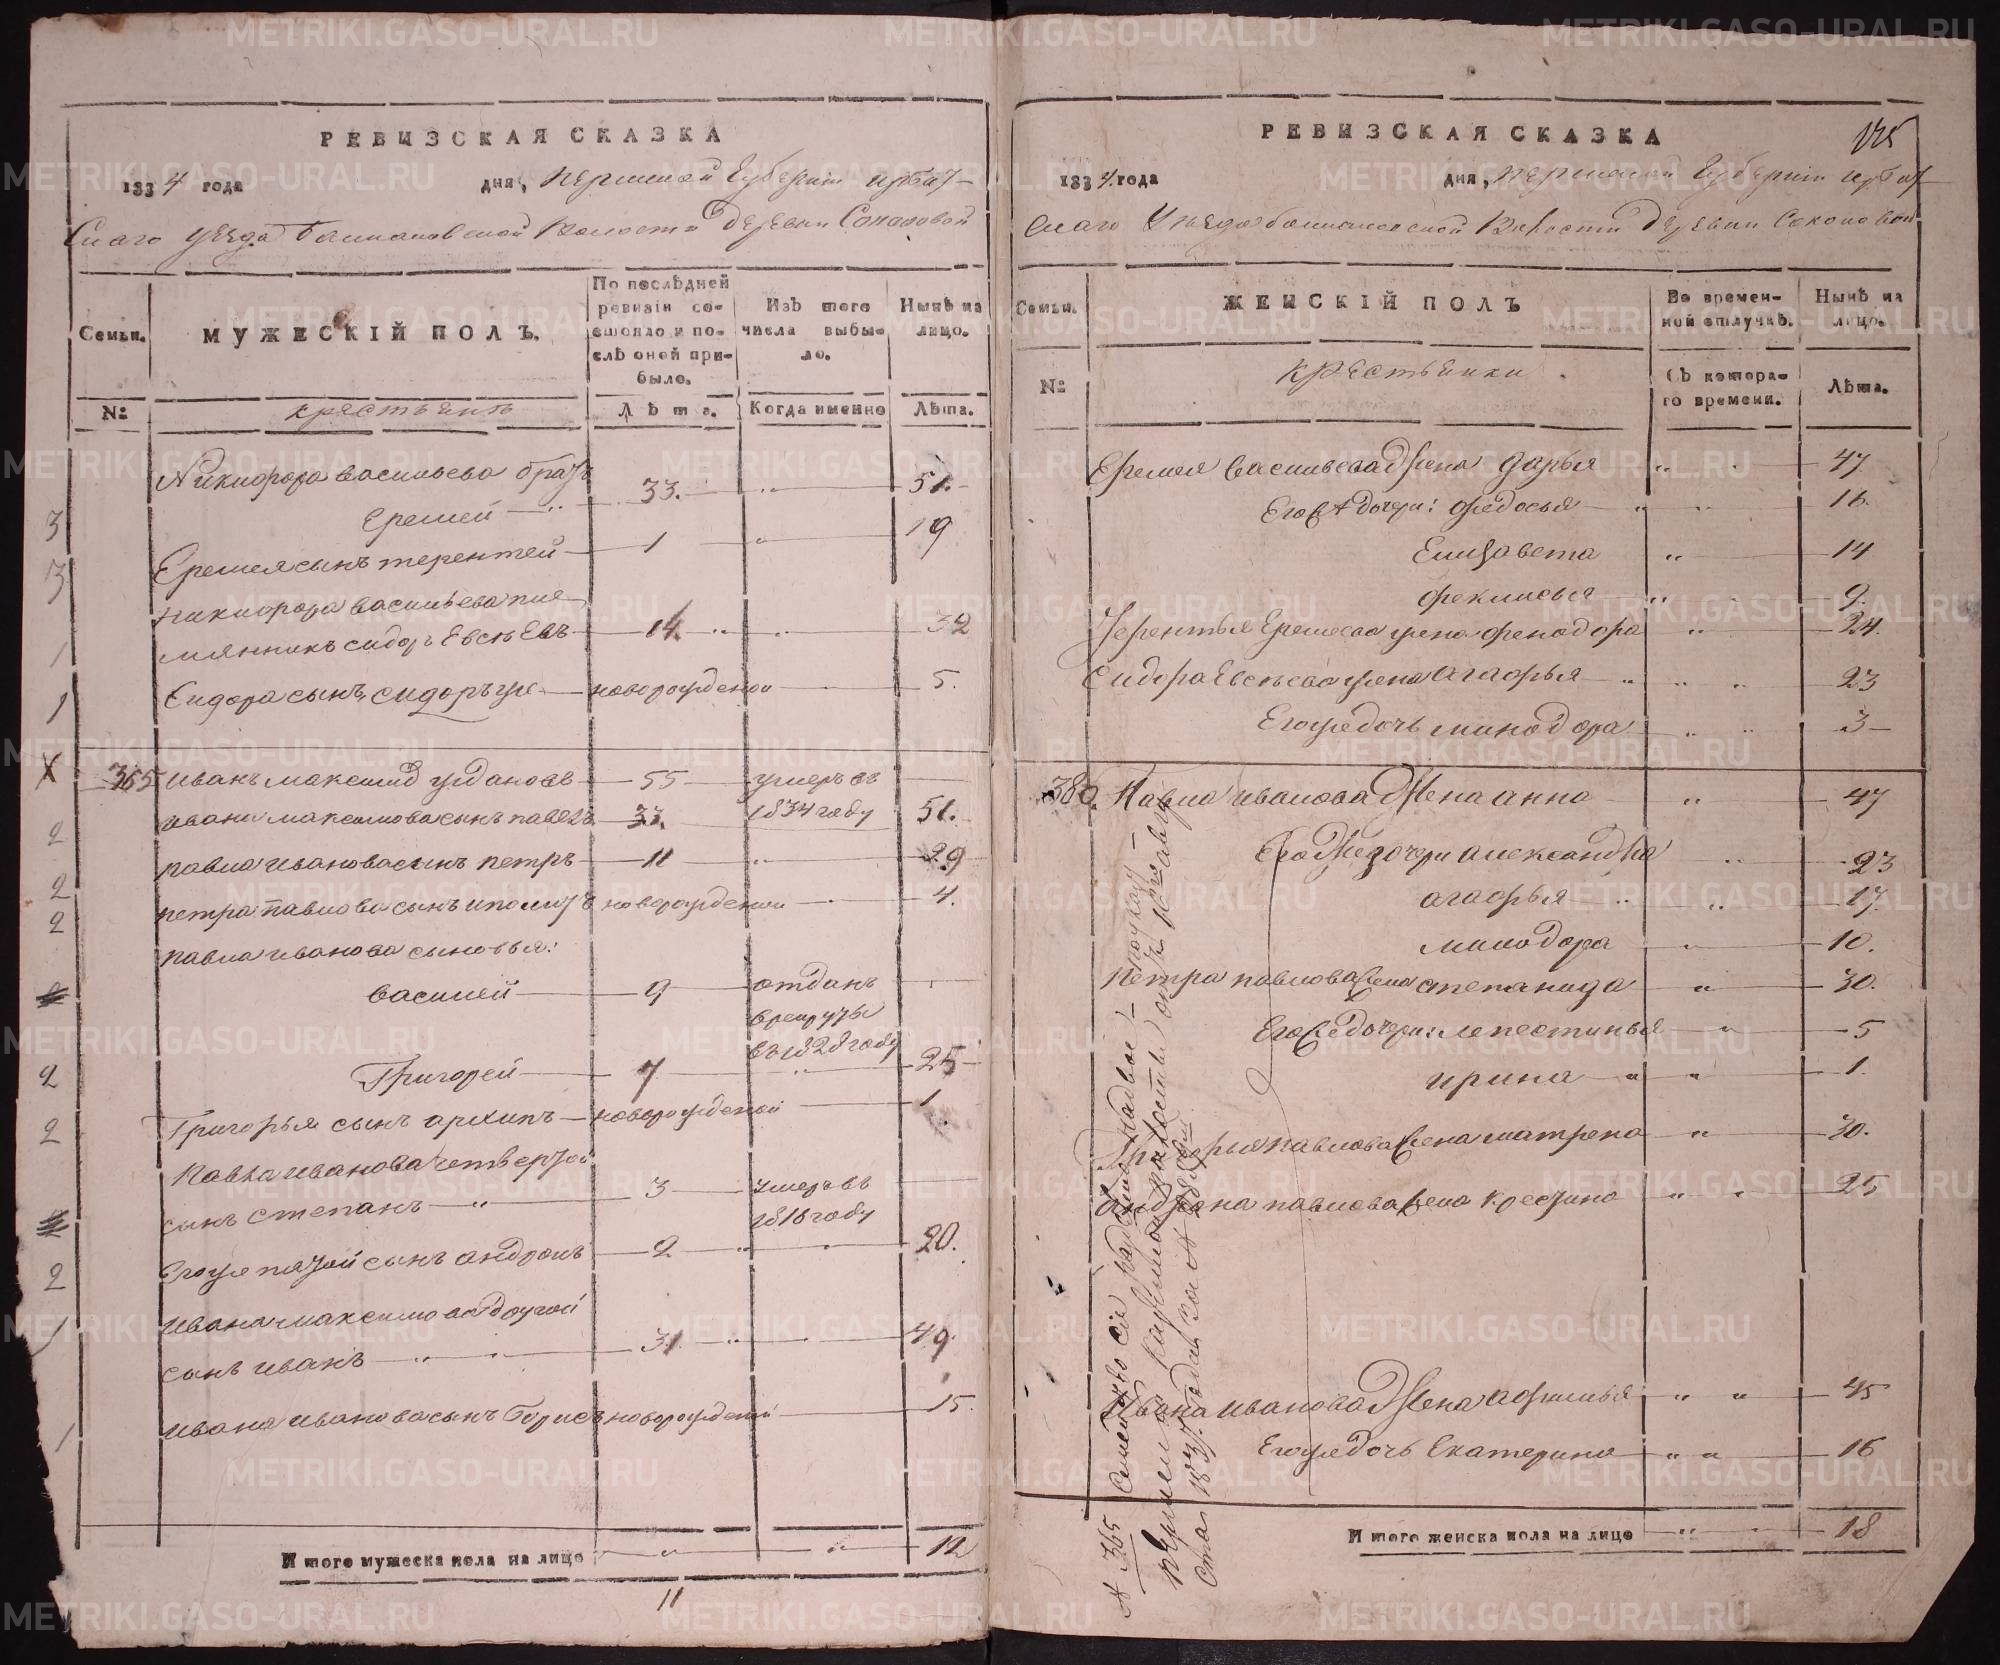 РЕВИЗСКАЯ СКАЗКА
1834 года дня, Пермской Губерніи Ирбит-
скаго уезда волости деревни
Семьи.
МУЖЕСКІЙ ПОЛЪ.
По послѣдней ревизіи состояло и послѣ оной прибыло.
Изъ того числа выбыло.
Нынѣ на лицо.
№
крестьянъ
Лѣта.
Когда именно
Лѣта.
Никифора васильева братъ
Еремей 33. 51.
Еремея сынъ терентей 1 19
никифора васильева пле-
мянникъ сидоръ Евсѣевъ 14. 32
Сидора сынъ сидоръ же новорожденой 5.
365 иванъ максимов 55 умеръ въ
1834 году
ивана максимова сынъ павелъ 33. 51.
павла иванова сынъ петръ 11 29
петра павлова сынъ новорожденой 4.
павла иванова сыновья:
василей 9 отданъ
в рекруты
въ 1828 году
Григорей 7 25
Григорья сынъ архипъ новорожденой 1
Павла иванова четвертой
сынъ степанъ 3 умеръ въ
1816 году
Его же пятой сынъ андронъ 2 20.
ивана максимова другой
сынъ иванъ 31 49.
ивана иванова сынъ борисъ новорожденой 15.
Итого мужеска пола на лицо 12
11
РЕВИЗСКАЯ СКАЗКА
175
1834 года дня, Пермской Губерніи Ирбит-
скаго Уезда Волости деревни
Семьи.
ЖЕНСКІЙ ПОЛЪ
Во временной отлучкѣ.
Нынѣ на лицо.
№
крестьянки
Съ котораго времени.
Лѣта.
Еремея васильева жена дарья 47
Его дочери: федосья 16.
Елизавета 14
феклисья 9.
Терентья Еремеева жена фенодора 24.
Сидора Евсѣева жена агафья 23
Его же дочь минодора 3
380. Павла иванова жена анна 47
Его же дочери александра 23
агафья 17.
минодора 10.
петра павлова жена степанида 30.
Его же дочери: 5
ирина 1.
Григорья павлова жена матрена 30.
Андрона павлова жена 25
Ивана иванова жена 45
Его же дочь Екатерина 16
Итого женска пола на лицо 18
№ 365 Семейство сіе